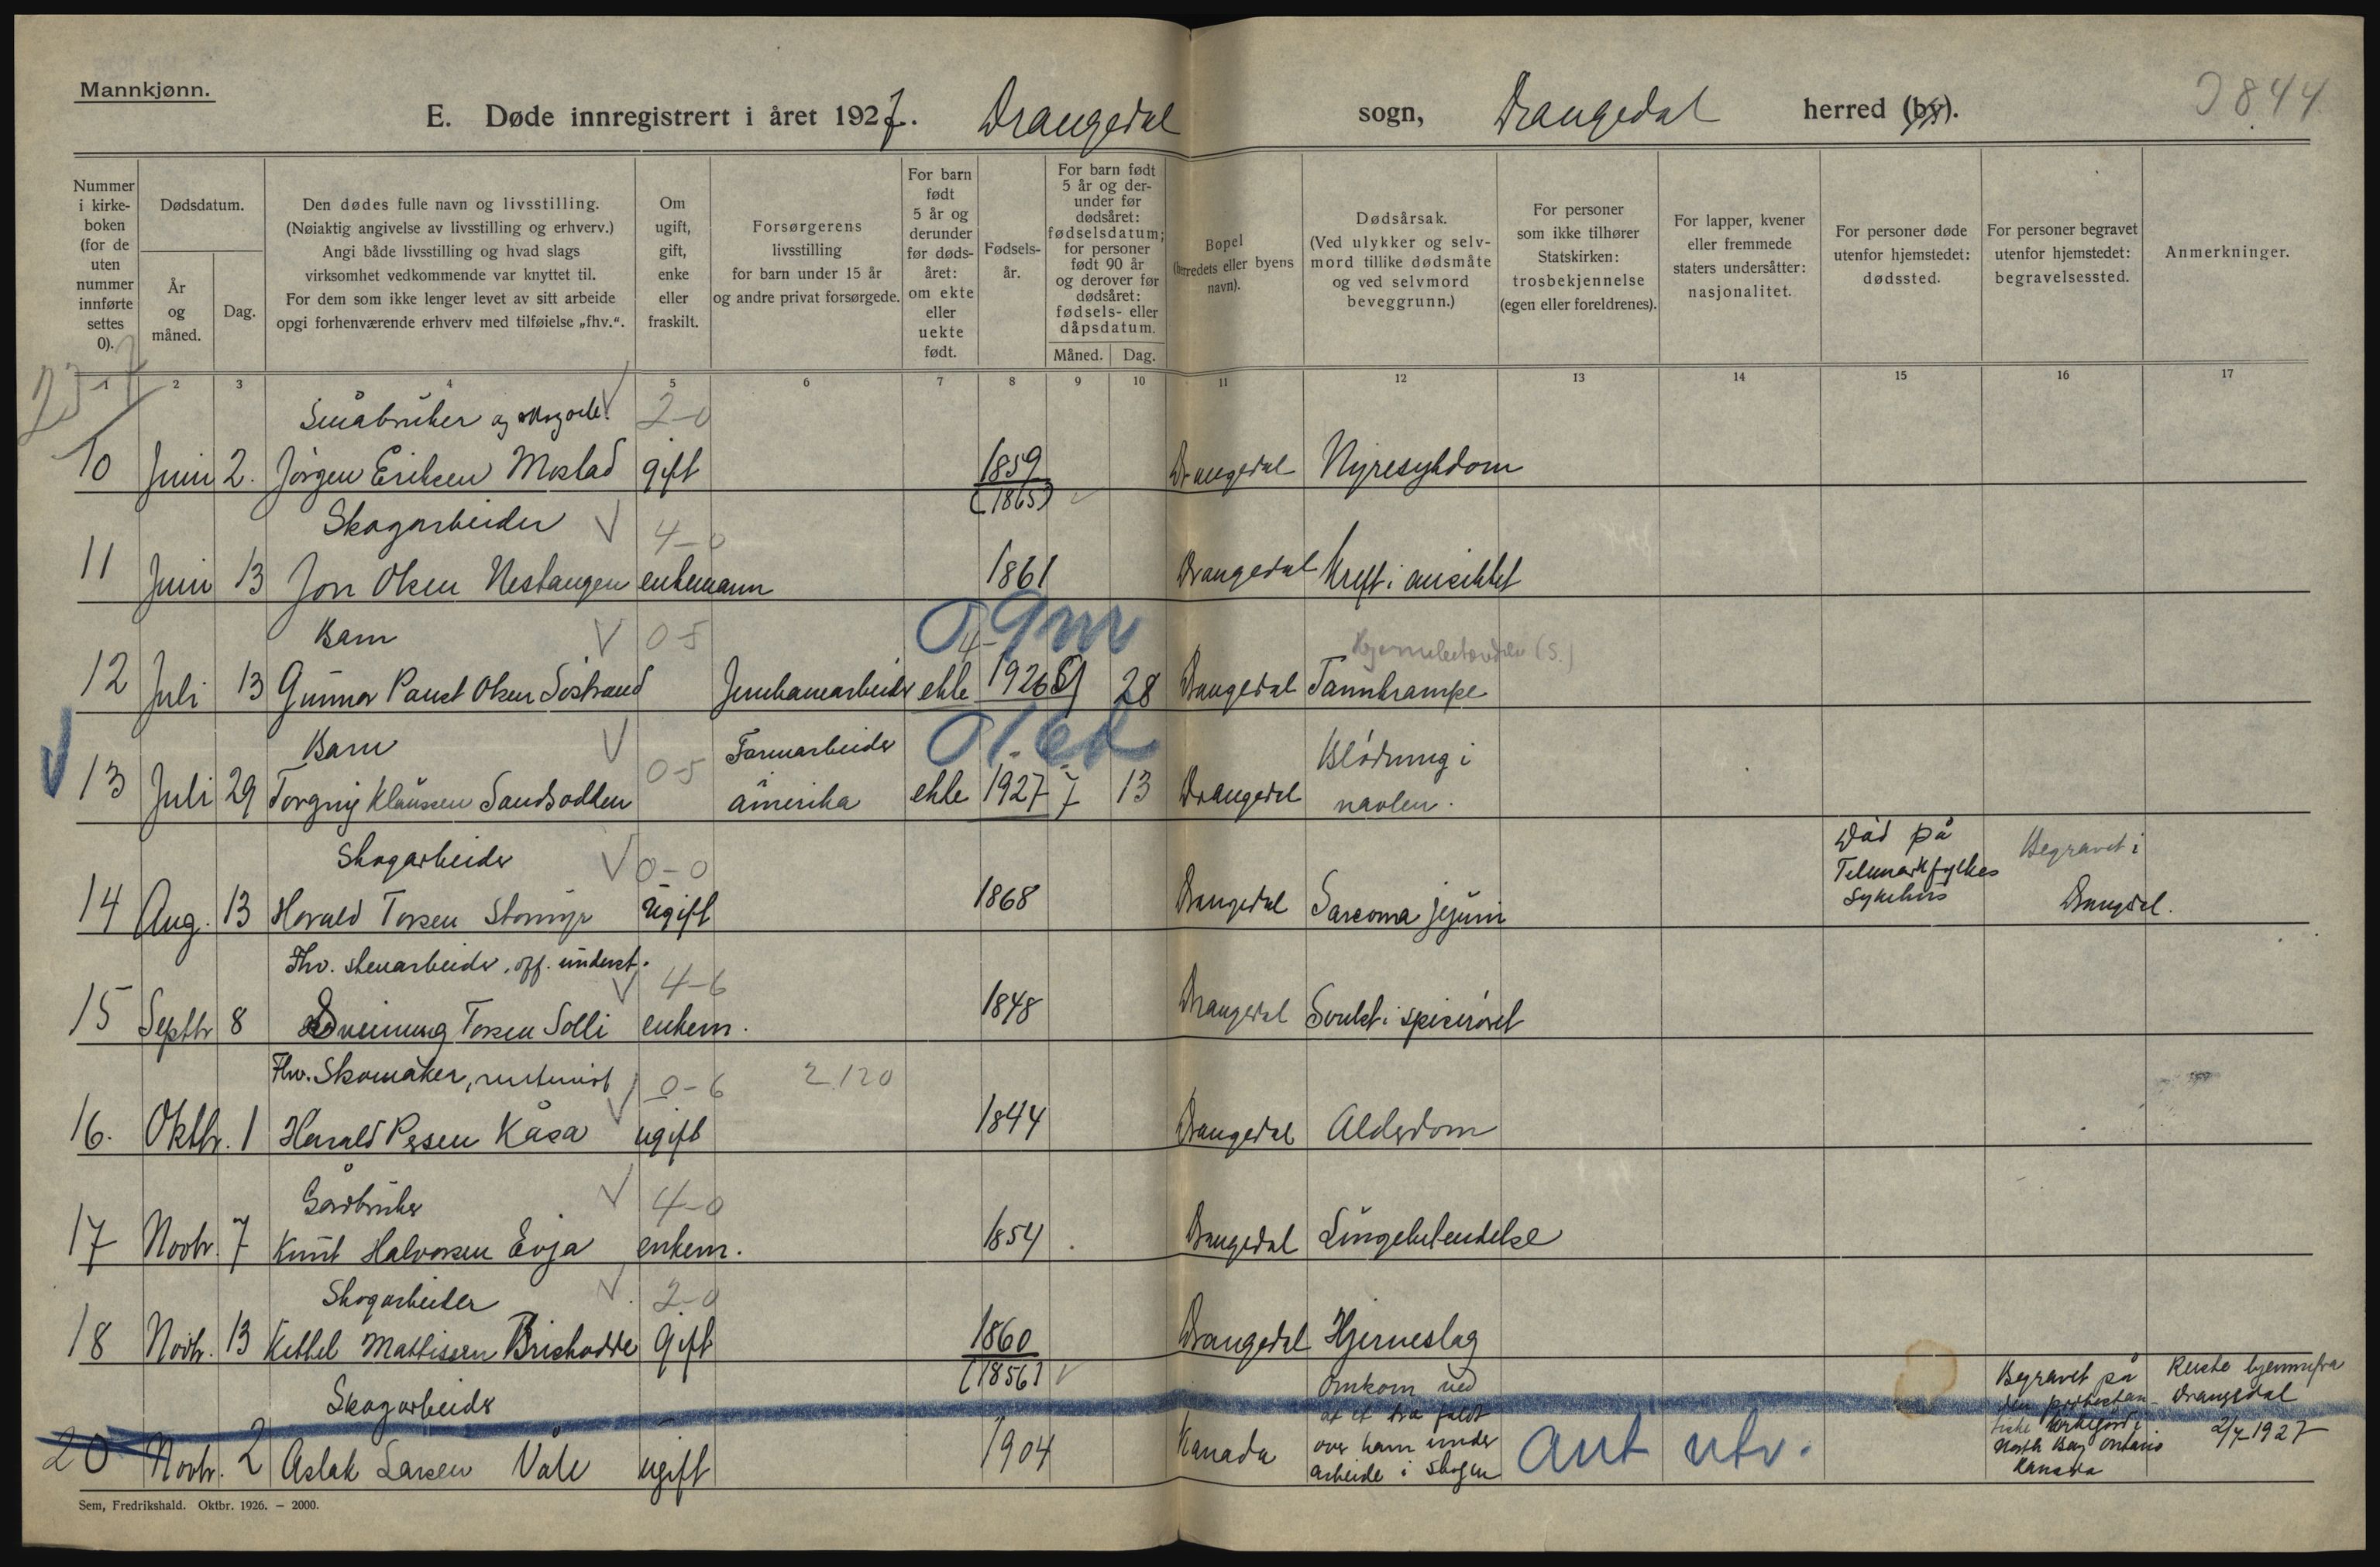 Mannkjønn.
E. Døde innregistrert i året 1927. Drangedal sogn, Drangedal herred (by).
2844
Nummer i kirkeboken (for de uten nummer innførte settes 0).
Dødsdatum.
År og måned.
Dag.
Den dødes fulle navn og livsstilling.
(Nøiaktig angivelse av livsstilling og erhverv.)
Angi både livsstilling og hvad slags
virksomhet vedkommende var knyttet til.
For dem som ikke lenger levet av sitt arbeide
opgi forhenværende erhverv med tilføielse „fhv.“.
Om ugift, gift, enke eller fraskilt.
Forsørgerens
livsstilling
for barn under 15 år
og andre privat forsørgede.
For barn født 5 år og derunder før dødsåret: om ekte eller uekte født.
Fødselsår.
For barn født 5 år og derunder før dødsåret: fødselsdatum; for personer født 90 år og derover før dødsåret: fødsels- eller dåpsdatum.
Måned. Dag.
Bopel
(herredets eller byens
navn).
Dødsårsak.
(Ved ulykker og selvmord tillike dødsmåte og ved selvmord beveggrunn.)
For personer
som ikke tilhører
Statskirken:
trosbekjennelse
(egen eller foreldrenes).
For lapper, kvener
eller fremmede
staters undersåtter:
nasjonalitet.
For personer døde
utenfor hjemstedet:
dødssted.
For personer begravet
utenfor hjemstedet:
begravelsessted.
Anmerkninger.
1 2 3 4 5 6 7 8 9 10 11 12 13 14 15 16 17
Småbruker og skogarb. 2-0
10 Juni 2. Jörgen Eriksen Mostad gift 1859 Drangedal Nyresykdom
(1865)
Skogarbeider 4-0
11 Juni 13 Jon Olsen Nestangen enkemann 1861 Drangedal Kreft i ansiktet
Barn 0-5 0 9 m Hjernebetendelse (S.)
12 Juli 13 Gunnar Paust Olsen Söstrand Jernbanearbeider ekte 1926 9 28 Drangedal Tannkrampe
Barn 0-5 Farmarbeider Blödning i
13 Juli 29 Torgny Klausen Sandsodden amerika ekte 1927 7 13 Drangedal navlen.
Skogarbeider 0-0 Död på Telemark fylkes Sykehus Begravet i
14 Aug. 13 Harald Torsen Stormyr ugift 1868 Drangedal Sarcoma jejuni Drangedal.
Fhv. stenarbeider, off. underst. 4-6
15 Septbr 8 Sveinung Torsen Solli enkem. 1848 Drangedal Svulst i spiserøret
Fhv. Skomaker, 0-6 2.120
16. Oktbr. 1 Harald Persen Kåsa ugift 1844 Drangedal Alderdom
Gårdbruker 4-0
17 Novbr. 7 Knut Halvorsen Evja enkem. 1854 Drangedal Lungebetendelse
Skogarbeider 2-0
18 Novbr. 13 Kettel Mattissen Brishodde gift 1860 Drangedal Hjerneslag
(1856)
Skogarbeider
20 Novbr. 2 Aslak Larsen Våle ugift 1904 Kanada
Omkom ved
at et tre faldt
over ham under
arbeide i skogen
ant utv.
Begravet på
den protestan-
tiske kirkegård i
North Bay Ontario
Kanada
Reiste hjemmefra
Drangedal
2/4 1927
Sem, Fredrikshald. Oktbr. 1926. – 2000.